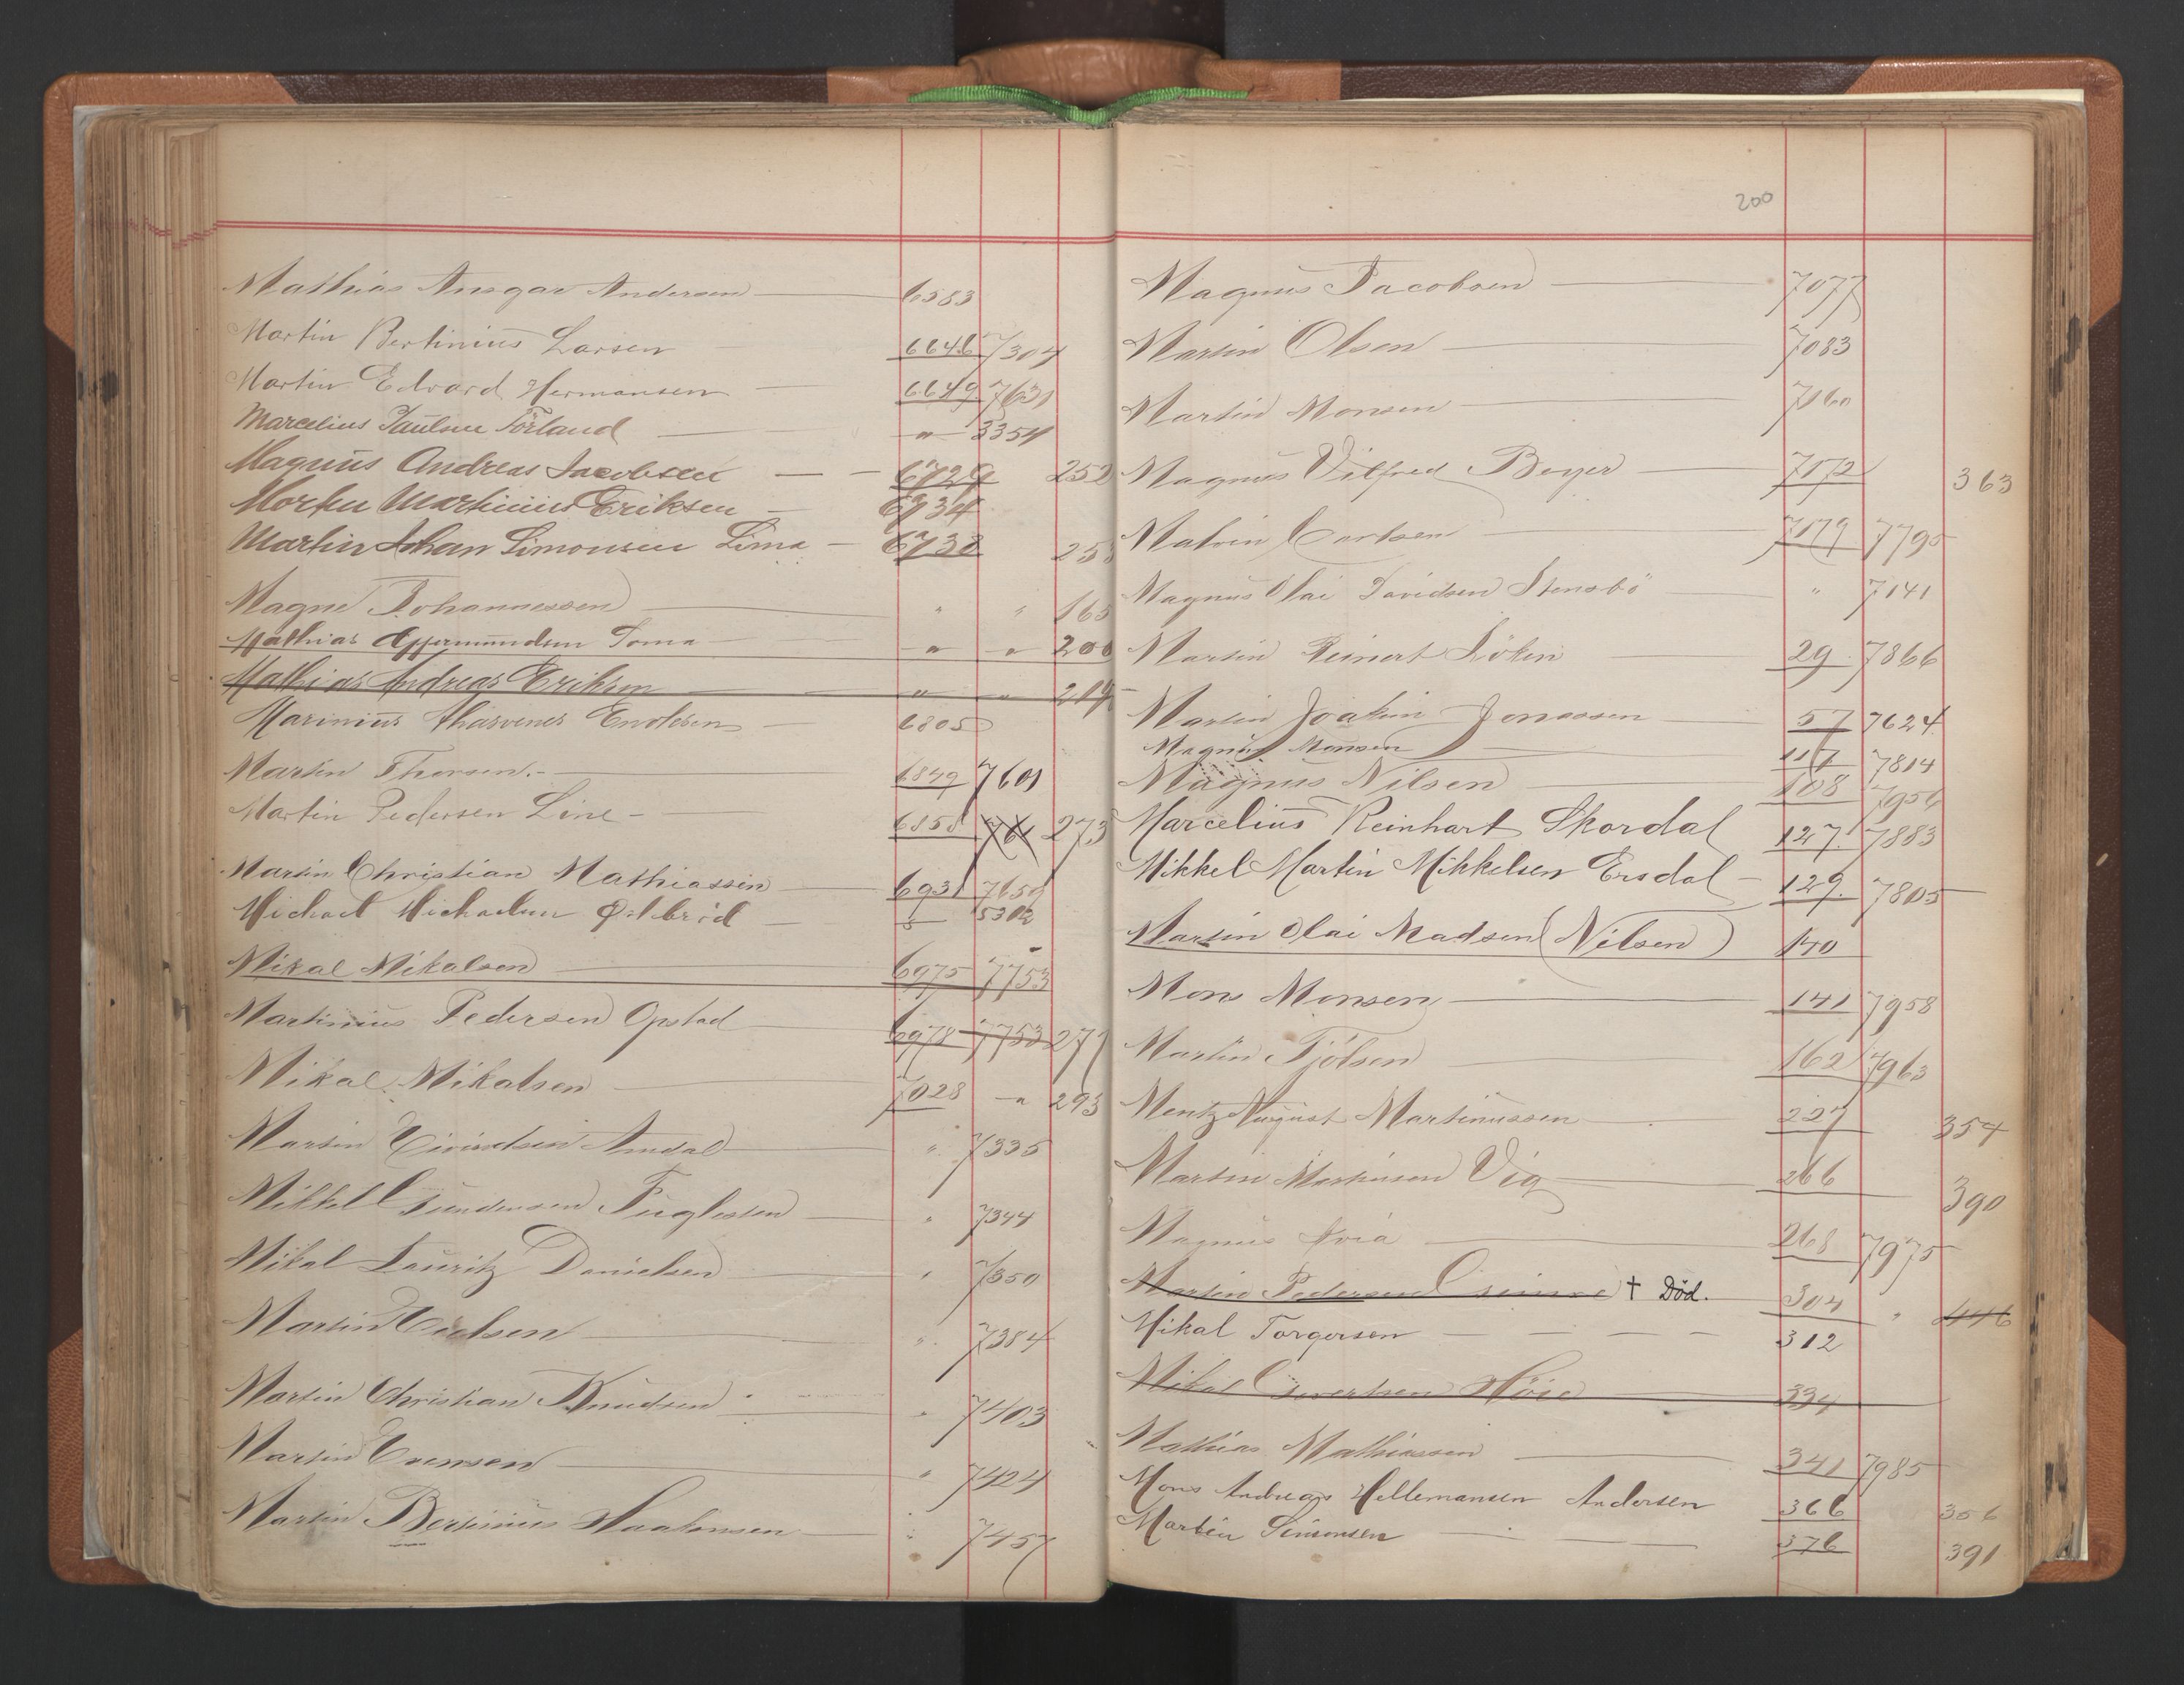 Mathias Ansgar Andersen 6583
Martin Bertinius Larsen 6646 7304
Martin Edvard Hermansen 6649 7631
Marcelius Paulsen Förland " 3354
Magnus Andreas Jacobsen 6729 252
Morten Martinius Eriksen 6734
Martin Johan Simonsen Lima 6738 253
Magne Johannessen " " 165
Mathias Asgermundsen Soma " " 200
Mathias Andreas Eriksen " " 219
Marinius Enoksen 6805
Martin Thorsen 6849 7601
Martin Pedersen Line 6858 761 273
Martin Christian Mathiassen 6931 7659
Michael Michaelsen 5302
Mikal Mikalsen 6975 7753
Martinius Pedersen Opstad 6978 7753 277
Mikal Mikalsen 7028 " 293
Martin Amdal " 7335
Mikkel Gundersen Fuglesten " 7344
Mikal Lauritz Danielsen " 7350
Martin " 7384
Martin Christian Knudsen " 7403
Martin Evensen " 7424
Martin Bertinius Haakonsen " 7457
200
Magnus Jacobsen 7077
Martin Olsen 7083
Martin Monsen 7160
Magnus Vilfred Beyer 7172 363
Carlsen 7179 7795
Magnus Olai Davidsen Stensbö " 7141
Martin Reinert Löken 29 7866
Martin Joakim Jonassen 57 7624
Magnus Monsen 117 7814
Magnus Nilsen 108 7956
Marcelius Reinhart Skordal 127. 7883
Mikkel Martin Mikkelsen Ersdal 129. 7805
Martin Olai Madsen (Nilsen) 140
Mons Monsen 141 7958
Martin Tjölsen 162 7963
Mentz August Martinussen 227 354
Martin Martinsen Vig 266 390
Magnus 268 7975
Martin Pedersen † Död. 304 " 446
Mikal Torgersen 312
Mikal Sivertsen Höie 334
Mathias Mathiassen 341 7985
Mons Andreas Hellemansen Andersen 366 356
Martin Simonsen 376 391